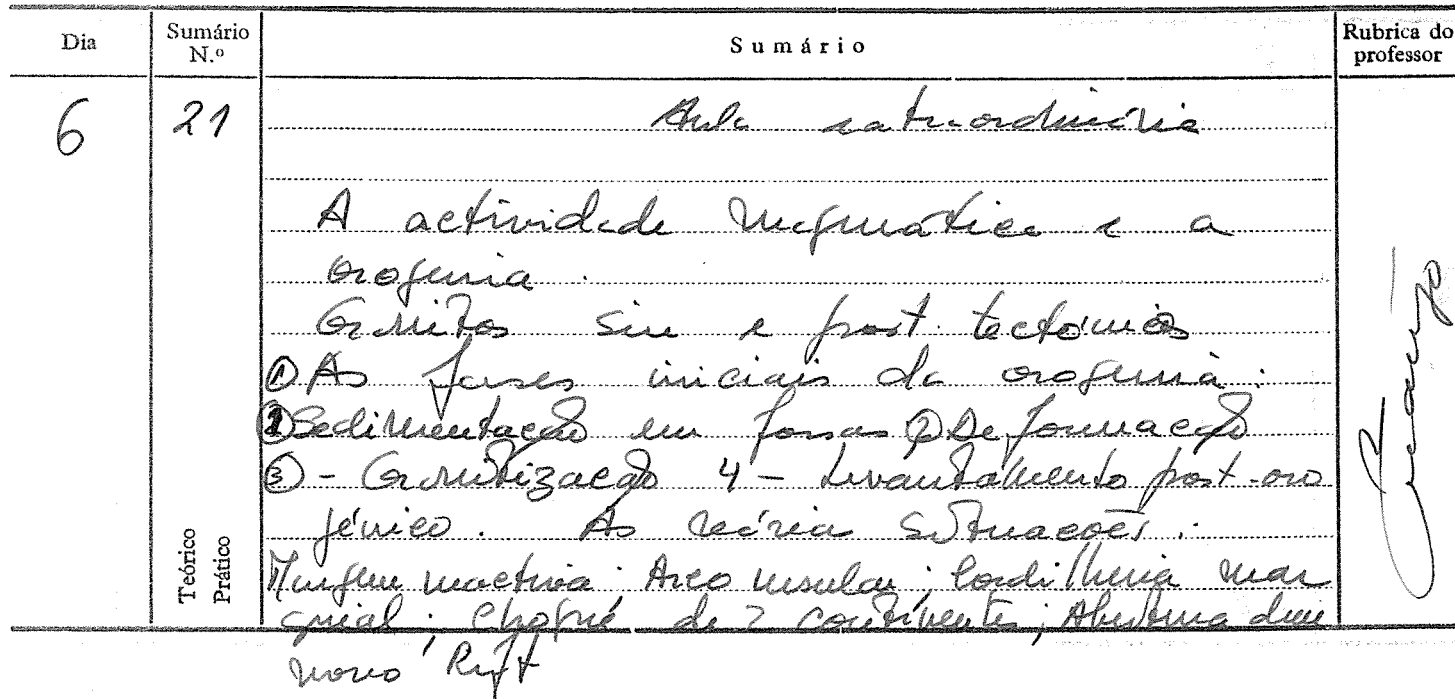 Dia
Sumário
N.º
Sumário
Rubrica do
professor
6
21
Aula extraordinária
A actividade magmática e a
orogenia.
Granitos sin e post. tectónicos
① As fases iniciais da orogenia:
① Sedimentação em fossas ② Deformação
③ - Granitização 4 - Levantamento post-oro
génico. As várias situações:
Margem inactiva; Arco insular; Cordilheira mar
ginal; Choque de 2 continentes; Abertura dum
novo Rift
Teórico
Prático